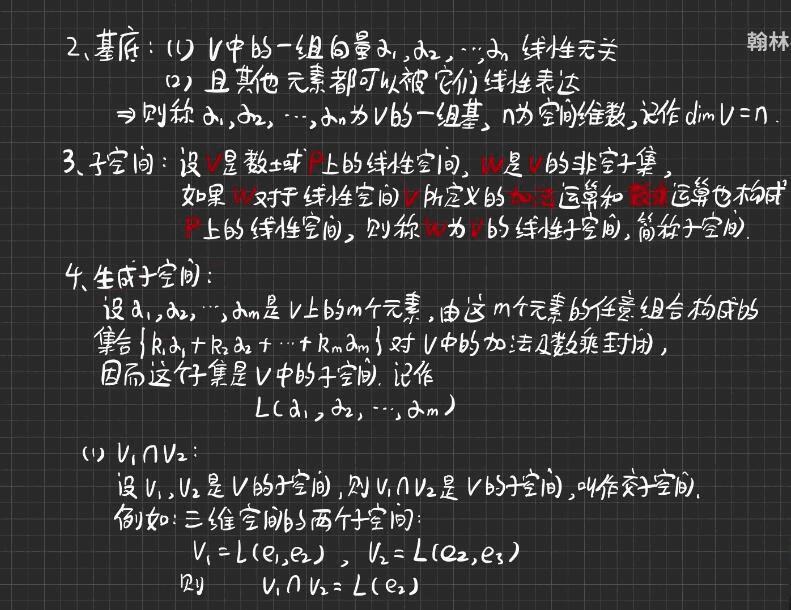 翰林
2、基底：(1) V中的一组向量α₁,α₂,…,αₙ 线性无关
(2) 且其他元素都可以被它们线性表达
⇒则称 α₁,α₂,…,αₙ为V的一组基，n为空间维数,记作dim V=n.
3、子空间：设V是数域P上的线性空间，W是V的非空子集，
如果W对于线性空间V所定义的加法运算和数乘运算也构成
P上的线性空间，则称W为V的线性子空间,简称子空间.
4、生成子空间：
设α₁,α₂,…,αₘ是V上的m个元素,由这m个元素的任意组合构成的
集合{k₁α₁+k₂α₂+…+kₘαₘ}对V中的加法及数乘封闭，
因而这个子集是V中的子空间.记作
L(α₁,α₂,…,αₘ)
(1) V₁∩V₂:
设V₁,V₂是V的子空间,则V₁∩V₂是V的子空间,叫作交子空间.
例如:三维空间的两个子空间:
V₁=L(e₁,e₂) , V₂=L(e₂,e₃)
则 V₁∩V₂=L(e₂)